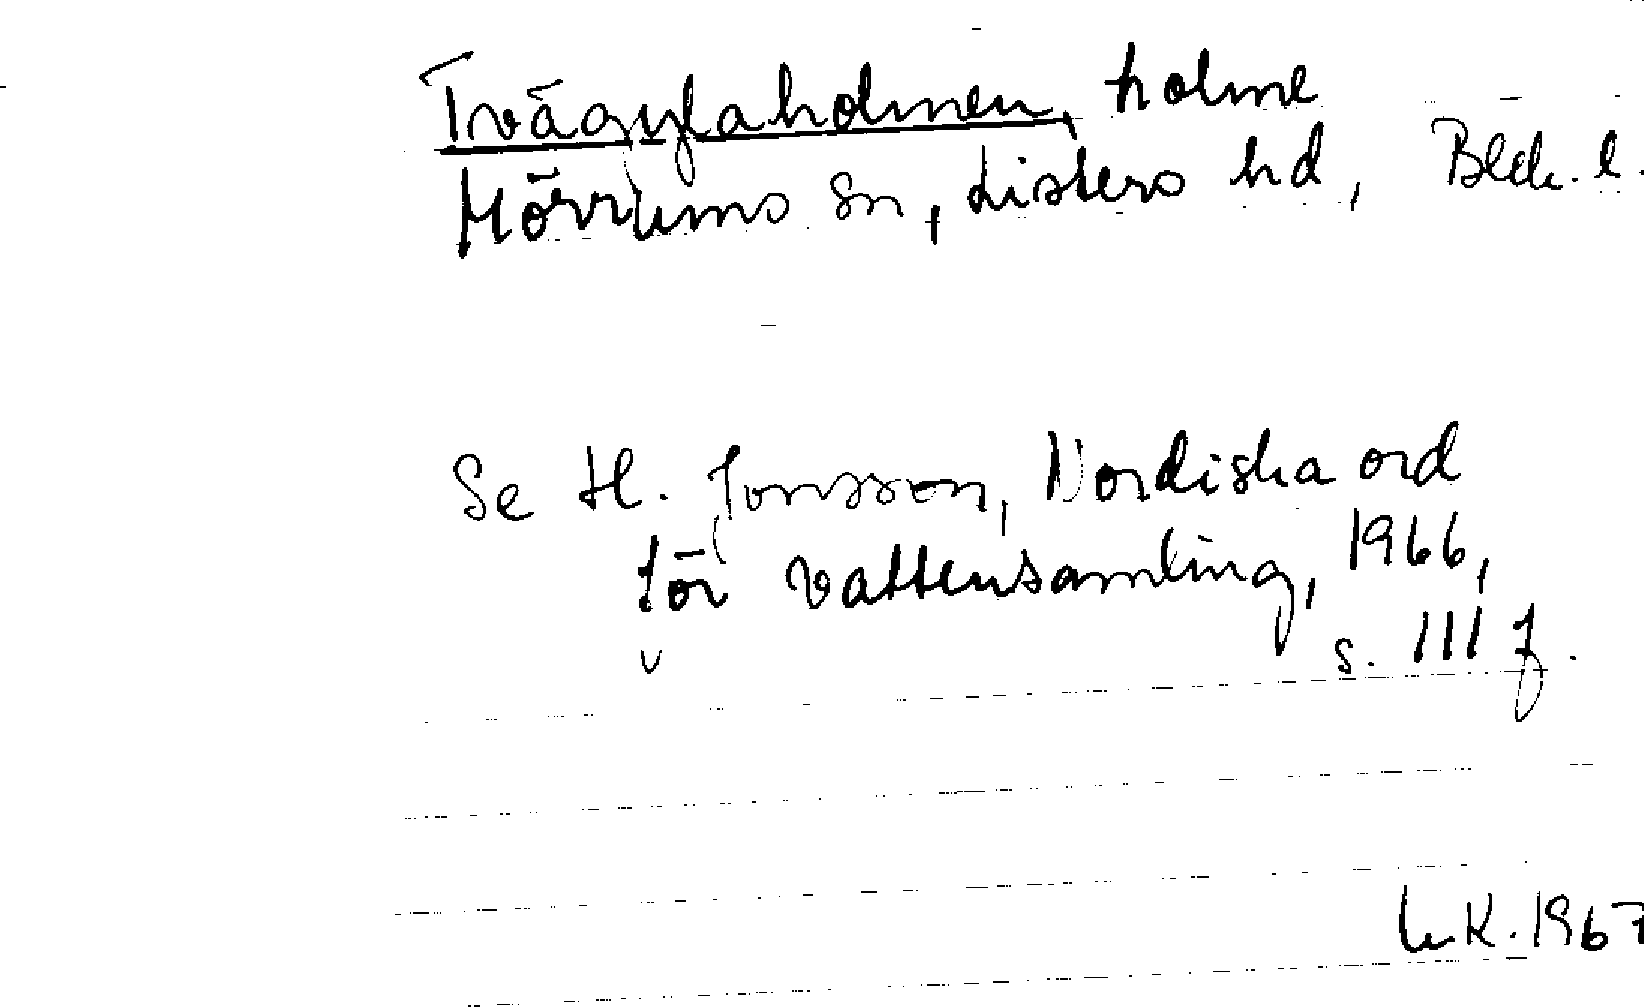 Trägylaholmen, holme
Mörrums sn, Listers hd, Blek. l.
Se H. Jonsson, Nordiska ord
för vattensamling, 1966,
s. 111 f.
K. 1967